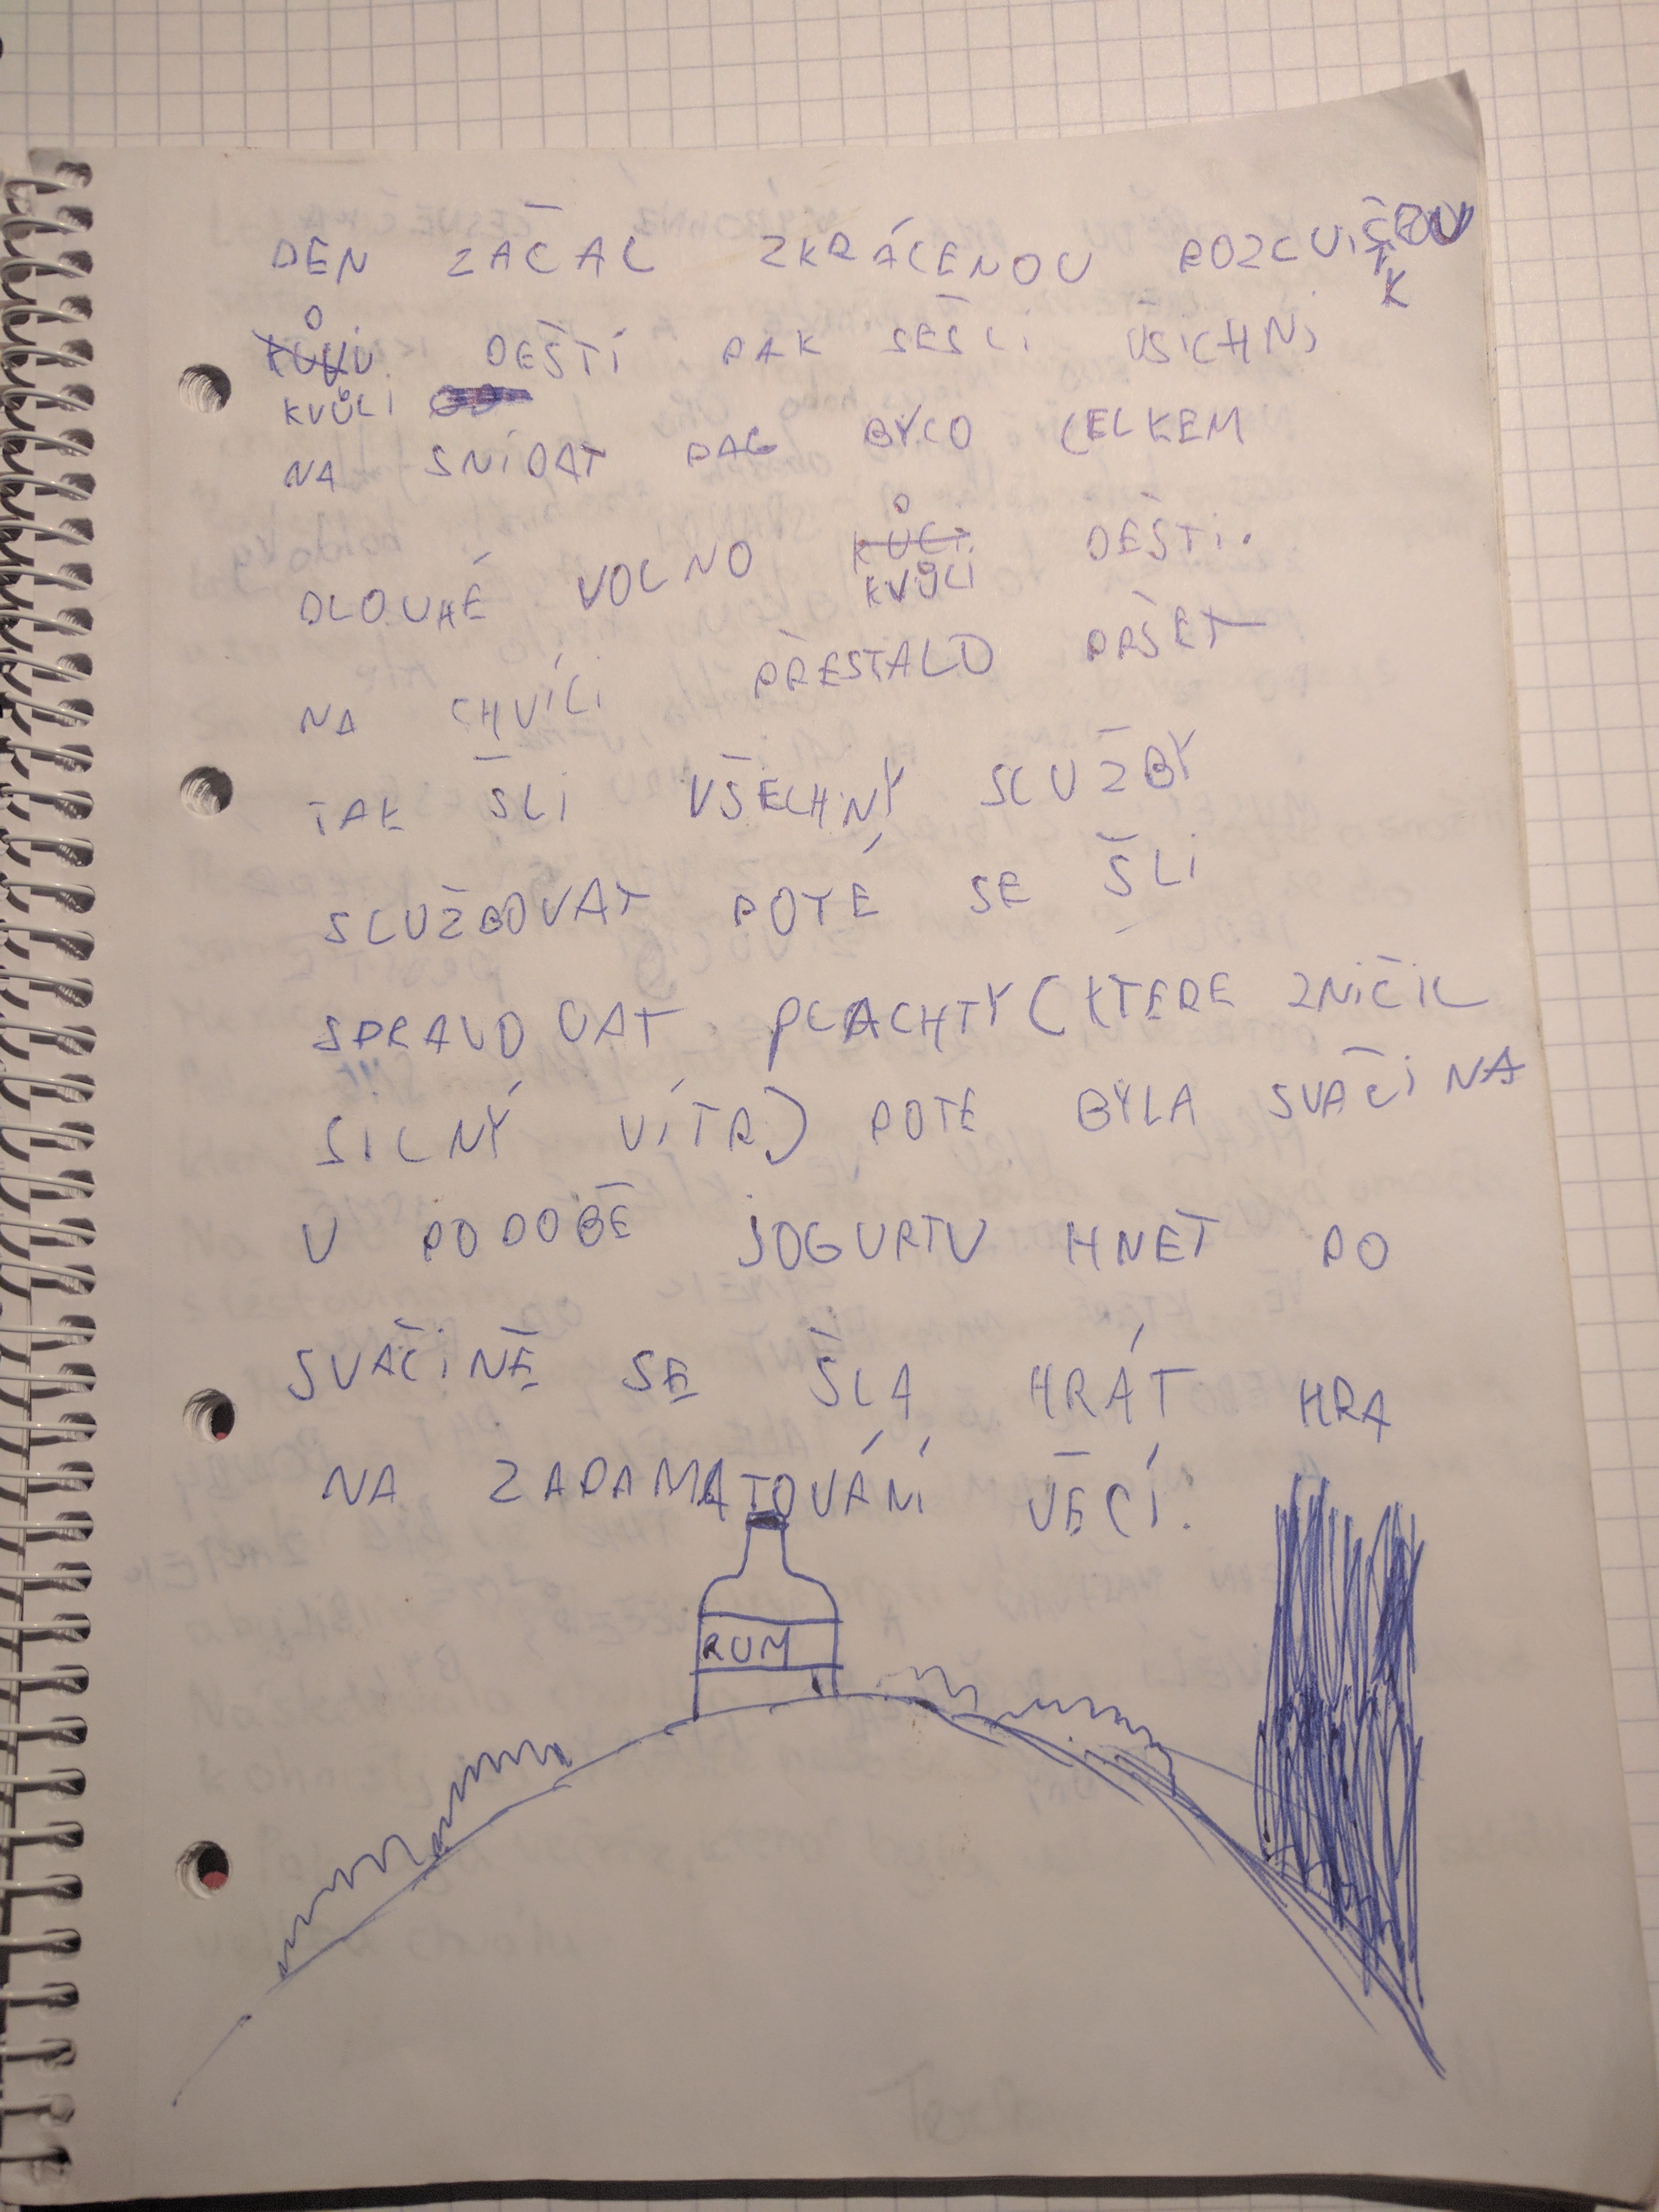 DEN ZAČAL ZKRÁCENOU ROZCVIŠKOU
KVŮLI DEŠTI PAK SEŠLI VŠICHNI
NA SNÍDAT PAG BYLO CELKEM
DLOUHÉ VOLNO KVŮLI DEŠTI.
NA CHVÍLI PŘESTALO PRŠET
TAK ŠLI VŠECHNY SLUŽBY
SLUŽBOVAT POTÉ SE ŠLI
SPRAVOVAT PLACHTY (KTERE ZNIČIL
SILNÝ VÍTR) POTE BYLA SVAČINA
V PODOBĚ JOGURTU HNET PO
SVAČINĚ SE ŠLA HRÁT HRA
NA ZAPAMATOVÁNÍ VĚCÍ.
RUM